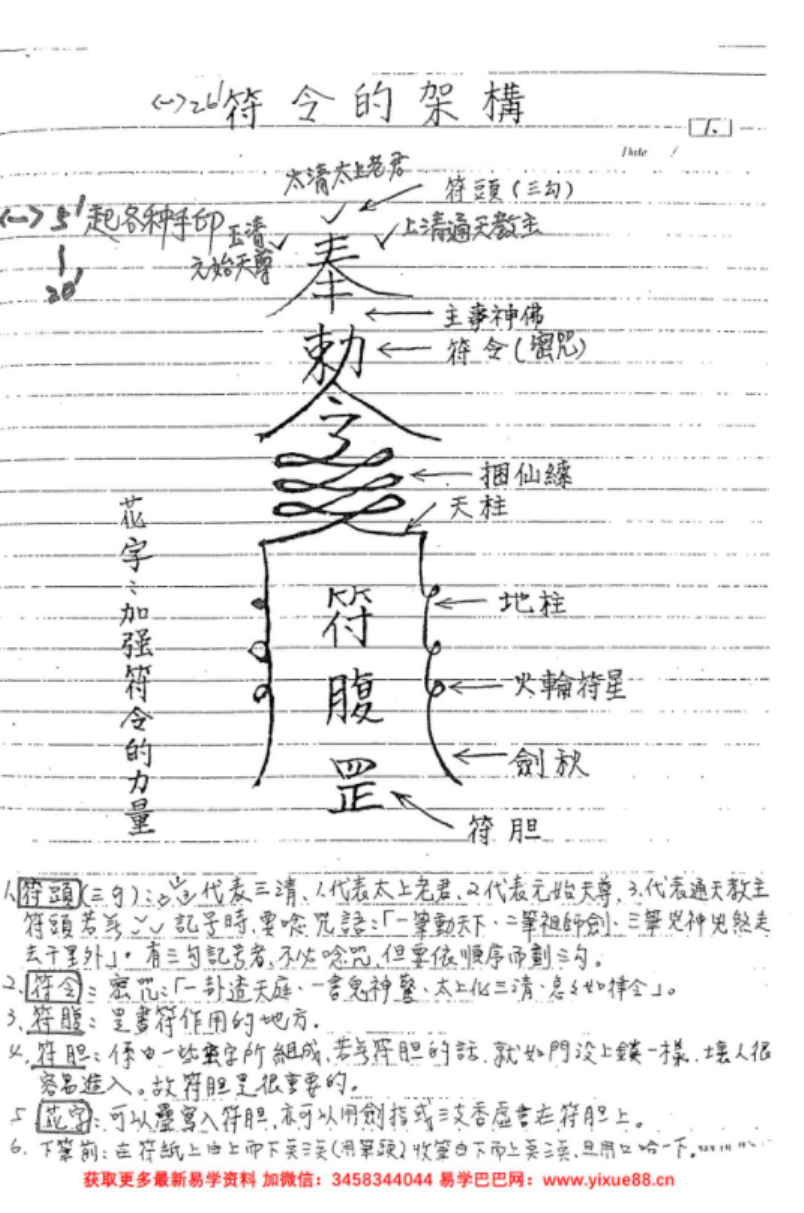 <一>26' 符令的架構
1.
Date /
太清太上老君
符頭(三勾)
<一> 5' 起各种手印
20'
玉清
元始天尊
上清通天教主
奉
主事神佛
勅
符令(密咒)
令
捆仙繩
天柱
花字:加强符令的力量
符腹
地柱
火輪符星
劍秋
罡
符胆
1.符頭(三勾):代表三清、1代表太上老君、2代表元始天尊、3.代表通天教主
符頭若無 記号時,要唸咒語:「一筆動天下、二筆祖師劍、三筆兇神兇煞走
去千里外」。有三勾記号者,不必唸咒,但要依順序而劃三勾。
2.符令:密咒:「一卦透天庭、一書鬼神驚、太上化三清、急急如律令」。
3.符腹:是書符作用的地方.
4.符胆:係由一些密字所組成,若無符胆的話,就如門没上鎖一樣,壞人很
容易進入。故符胆是很重要的。
5 花字:可以疊寫入符胆,亦可以用劍指或三支香虛書在符胆上。
6.下筆前:在符紙上由上而下 (用筆頭)收筆由下而上 ,且用口哈一下.
获取更多最新易学资料 加微信：3458344044 易学巴巴网：www.yixue88.cn